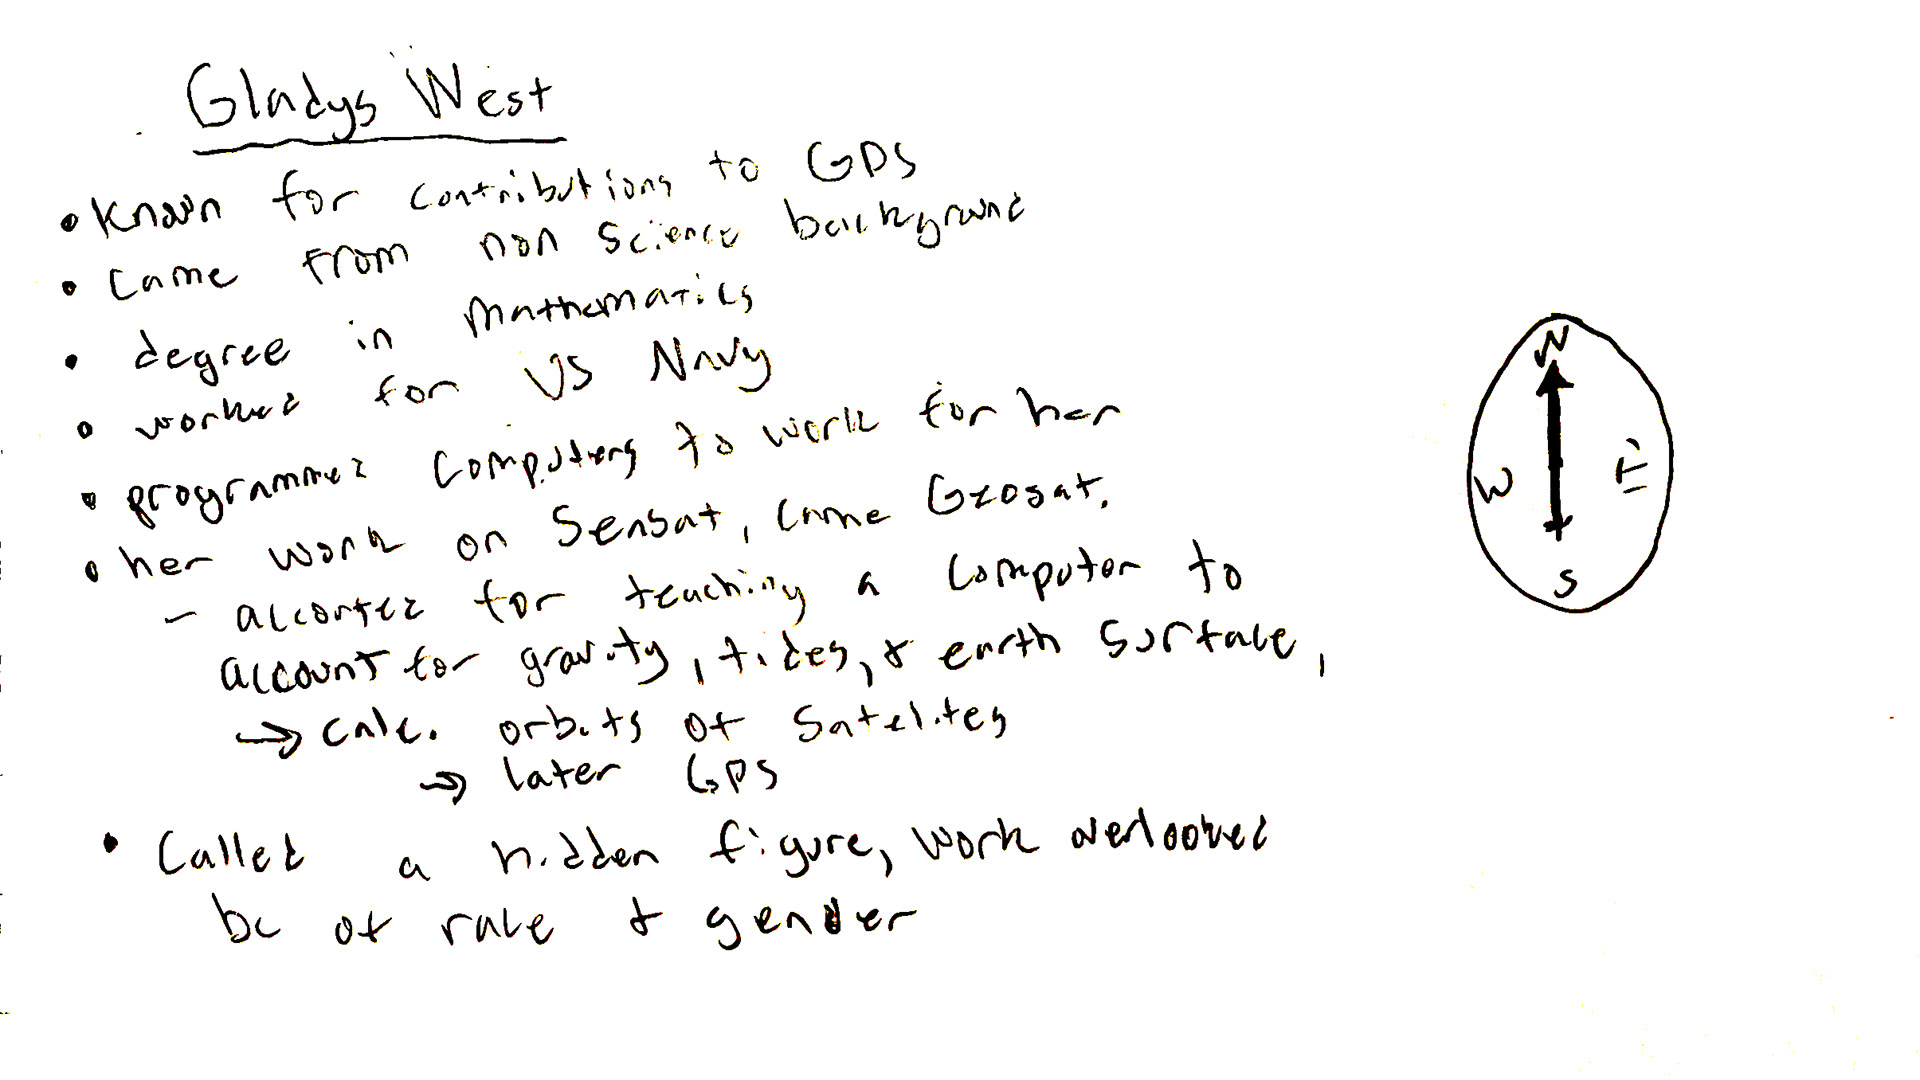 Gladys West
• Known for contributions to GPS
• Came from non science background
• degree in Mathematics
• worked for US Navy
• programmed computers to work for her
• her work on Sensat, came Geosat.
- accounted for teaching a computor to
account for gravity, tides, & earth surface,
→ calc. orbits of satelites
→ later GPS
• Called a hidden figure, work overlooked
bc of race & gender
N
W E
S